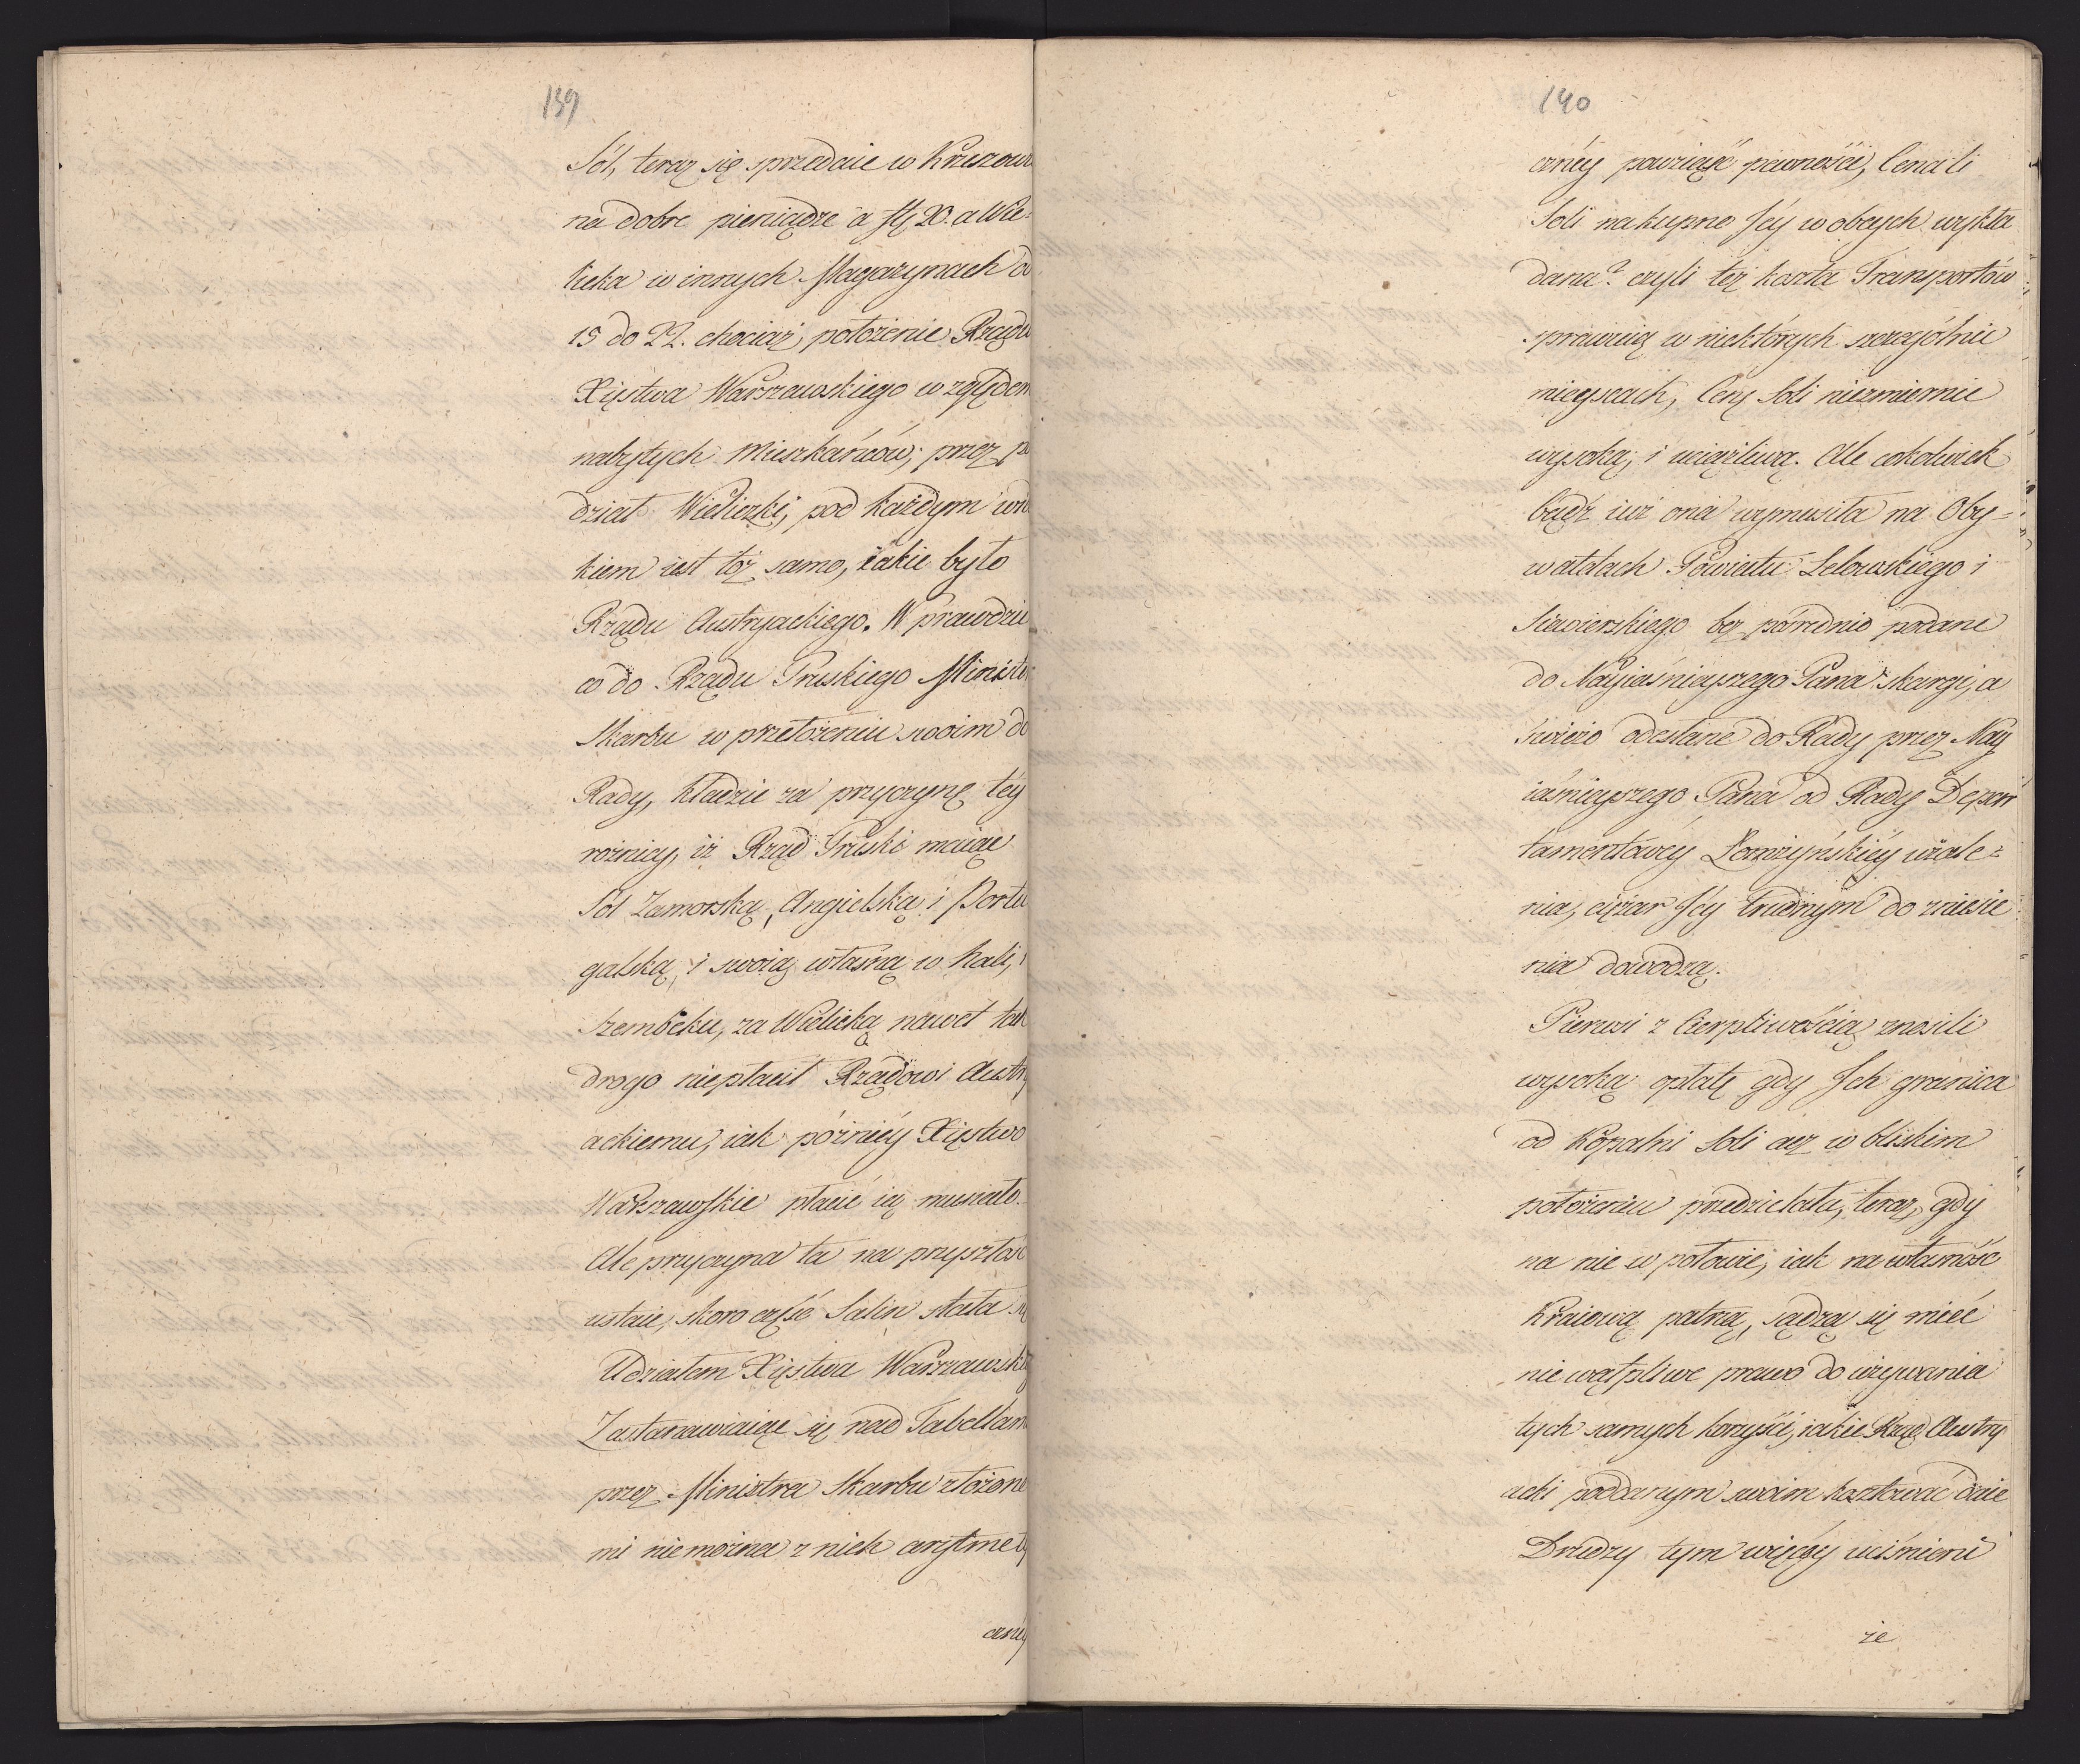 139
Sól, teraz się sprzedaie w Krzeszow
na dobre pieniądze a fl: 20. a Wie=
licka w innych Magazynach od
15 do 22. chociaż położenie Rządu
Xięstwa Warszawskiego względem
nabytych Mieszkańców, przez po
dział Wieliczki, pod każdym wid
kiem iest toż samo, iakie było
Rządu Austryackiego. Wprawdzie
co do Rządu Pruskiego Minister
Skarbu w przełożeniu swoim do
Rady, kładzie za przyczynę téy
rożnicy, iż Rząd Pruski maiąc
Sól Zamorską, Angielską i Portu
galską, i swoią własną w Hali, i
Szembeku, za Wielicką nawet tak
drogo niepłacił Rządowi Austry
ackiemu, iak pózniéy Xięstwo
Warszawskie płacić ią musiało.
Ale przyczyna ta na przyszłość
ustaie, skoro część Salin stała się
Udziałem Xięstwa Warszawskieg
Zastanawiaiąc się nad Tabellam
przez Ministra Skarbu złożone
mi niemożna z nich arytmety
cznéy
140
cznéy powziąść pewności, Cena li
Soli na kupno Jéy w obcych wykła
dana? czyli też koszta Transportów
sprawuią w niektórych szczególnie
mieyscach, Cenę Soli niezmiernie
wysoką, i uciążliwą. Ale cokolwiek
bądź iuż ona wymusiła na Oby=
watelach Powiatu Lelowskiego i
Siewierskiego bez pośrednio podane
do Nayiaśnieyszego Pana skargi, a
swieżo odesłane do Rady przez Nay
iaśnieyszego Pana od Rady Depar
tamentowéy Łomżyńskiéy użale=
nia, ciężar Jéy trudnym do zniesie
nia dowodzą.
Pierwsi z Cierpliwością znosili
wysoką opłatę gdy Jch granica
od Kopalni Soli acz w bliskim
położeniu przedzielała, teraz, gdy
na nie w połowie, iak na własność
Kraiową patrzą, sądzą się mieć
nie wątpliwe prawo do używania
tych samych korzyści, iakie Rząd Austry
acki poddanym swoim kosztować daie
Drudzy tym więcéy uciśnieni
że